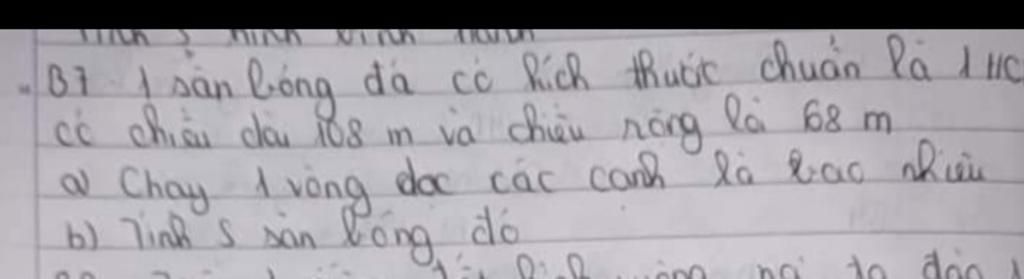 B7 1 sân bóng đá có kích thước chuẩn là 1 HC
có chiều dài 108 m và chiều rộng là 68 m
a) Chạy 1 vòng dọc các cạnh là bao nhiêu
b) Tính S sân bóng đó